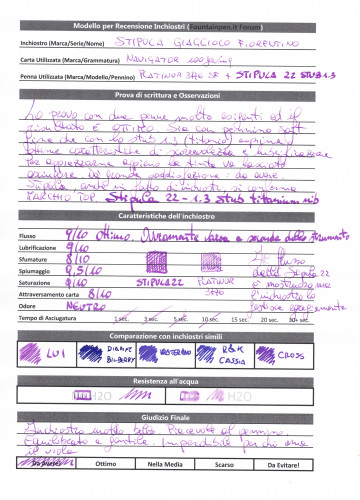 Modello per Recensione Inchiostri (Fountainpen.it Forum)
Inchiostro (Marca/Serie/Nome) STIPULA GIAGGIOLO FIORENTINO
Carta Utilizzata (Marca/Grammatura) NAVIGATOR
Penna Utilizzata (Marca/Modello/Pennino) PLATINUM 3776 SF + STIPULA 22 STUB 1.3
Prova di scrittura e Osservazioni
Lo provo con due penne molto esigenti ed il
risultato è ottimo. Sia con pennino soft
fine che con lo stub 1.3 (titanio) esprime
ottime caratteristiche di
Per apprezzarne appieno la tinta va lasciato
asciugare. La grande soddisfazione: da avere.
Stipula, anche in fatto di inchiostri, si conferma
MARCHIO TOP. Stipula 22 - 1.3 stub titanium nib
Caratteristiche dell'inchiostro
Flusso 9/10 Ottimo. Ovviamente varia a seconda dello strumento
Lubrificazione 9/10
Sfumature 8/10 Il flusso
Spiumaggio 9,5/10 della Stipula 22
Saturazione 9/10 STIPULA 22 PLATINUM 3776 è mostruoso ma
Attraversamento carta 8/10 l'inchiostro lo
Odore NEUTRO gestisce egregiamente
Tempo di Asciugatura 1 sec. 3 sec. 5 sec. 10 sec. 15 sec. 20 sec. 30+ sec.
Comparazione con inchiostri simili
LUI
DIAMINE BILBERRY
WATERMAN
R&K CASSIA
CROSS
Resistenza all'acqua
H2O H2O
Giudizio Finale
Inchiostro molto bello. Piacevole al pennino.
Equilibrato e gentile. Imperdibile per chi ama
il viola
Da Avere! Ottimo Nella Media Scarso Da Evitare!